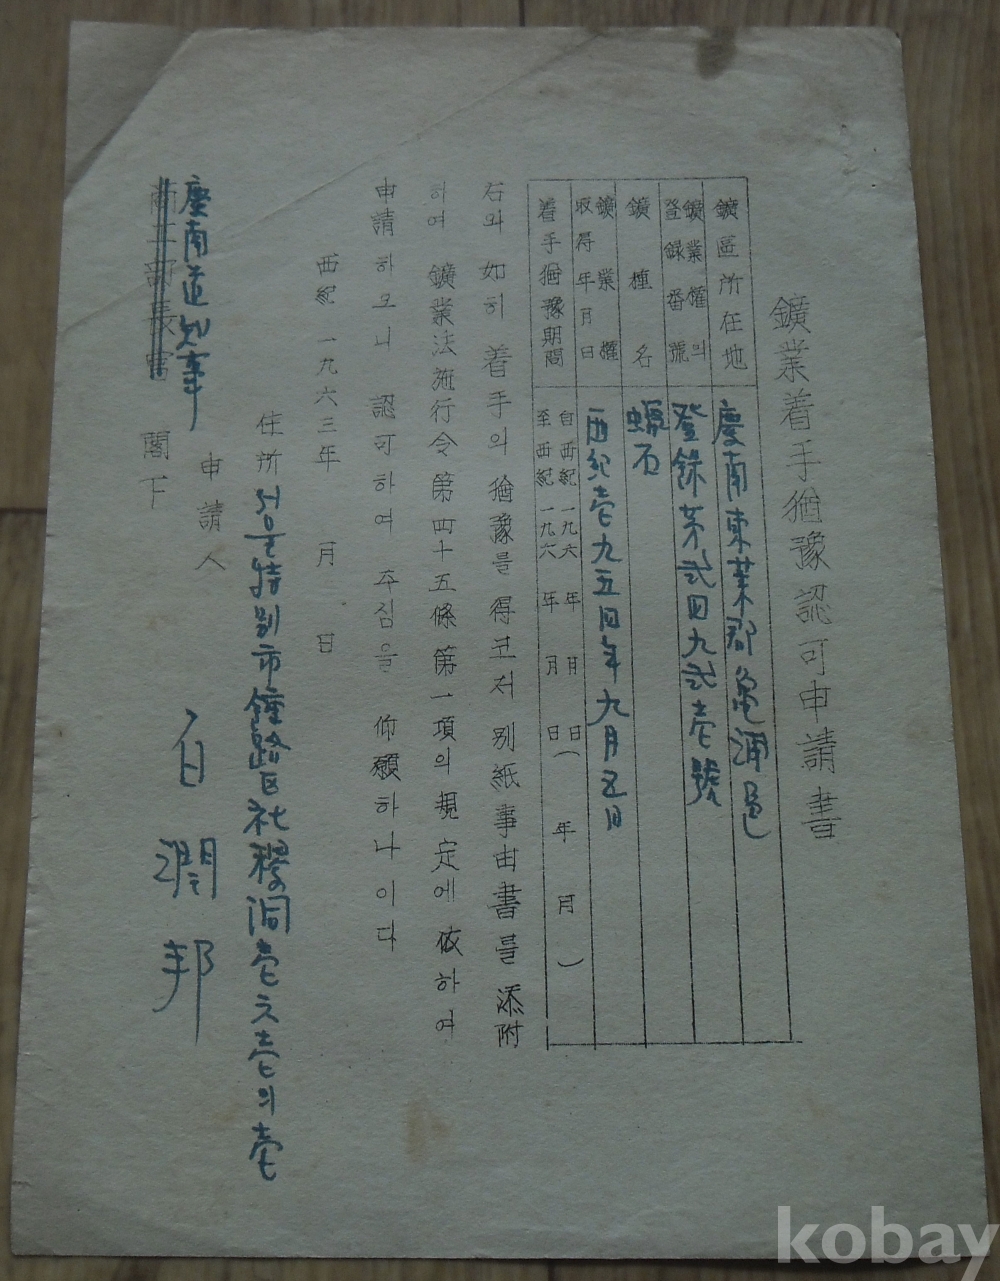 鑛業着手猶豫認可申請書
鑛區所在地 慶南東萊郡龜浦邑
鑛業權의登錄番號 登錄第弐四九弐壱號
鑛種名 蠟石
鑛業權取得年月日 西紀壱九五四年九月五日
着手猶豫期間 自西紀一九六 年 月 日
至西紀一九六 年 月 日( 年 月)
右와 如히 着手의 猶豫를 得코저 別紙事由書를 添附
하여 鑛業法施行令第四十五條第一項의 規定에 依하여
申請하오니 認可하여 주심을 仰願하나이다
西紀 一九六三年 月 日
住所 서울特別市鍾路区社稷洞壱六壱의壱
申請人 白潤邦
慶南道知事
商工部長官 閣下
kobay